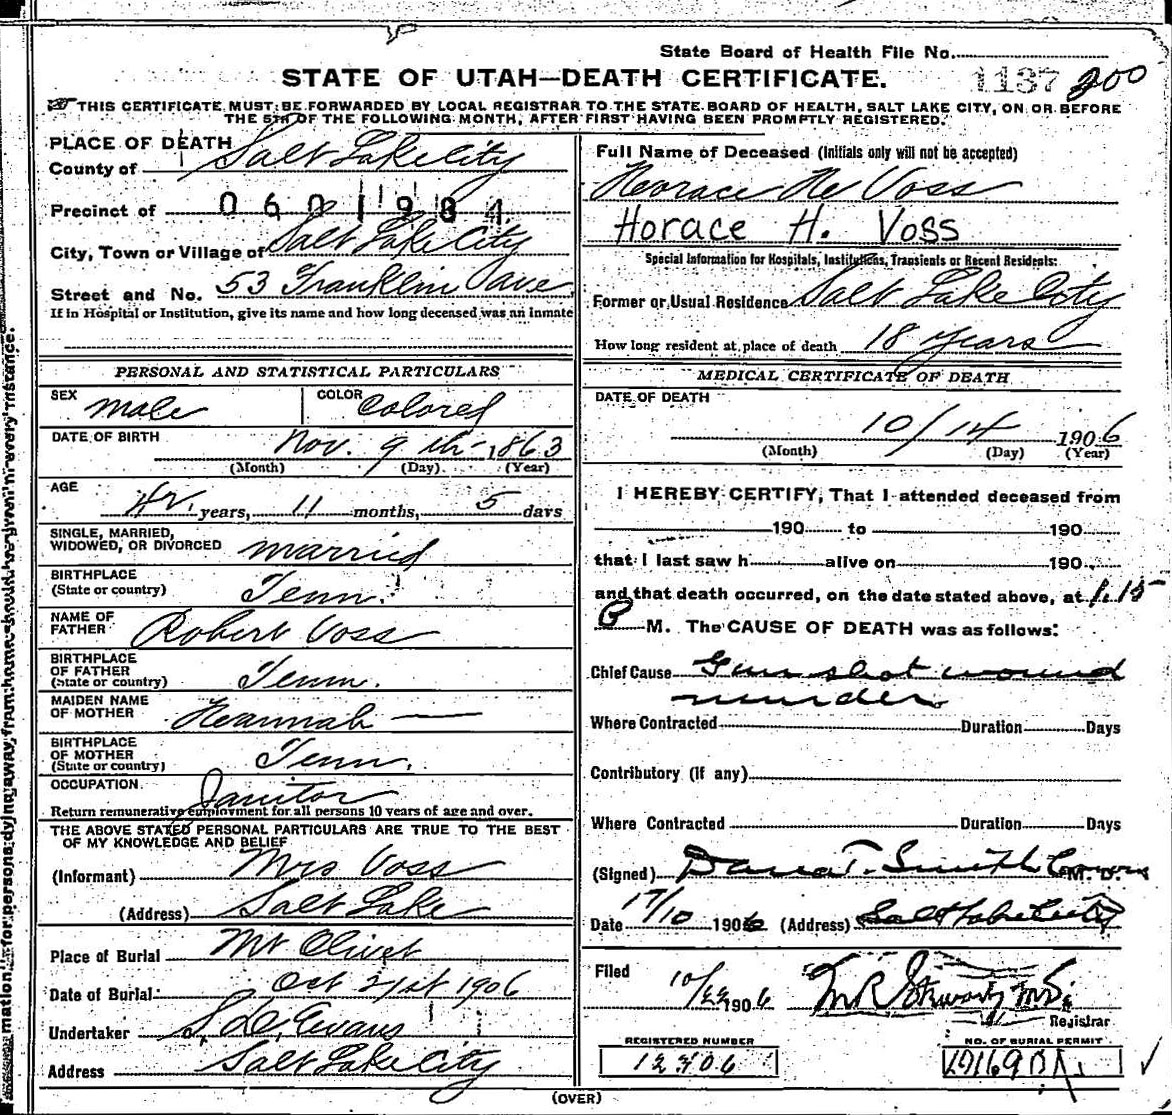 State Board of Health File No.
STATE OF UTAH—DEATH CERTIFICATE.
1137 200
THIS CERTIFICATE MUST BE FORWARDED BY LOCAL REGISTRAR TO THE STATE BOARD OF HEALTH, SALT LAKE CITY, ON OR BEFORE
THE 5TH OF THE FOLLOWING MONTH, AFTER FIRST HAVING BEEN PROMPTLY REGISTERED.
PLACE OF DEATH
County of Salt Lake City
Precinct of 060 1984
City, Town or Village of Salt Lake City
Street and No. 53 Franklin Ave
If in Hospital or Institution, give its name and how long deceased was an inmate
PERSONAL AND STATISTICAL PARTICULARS
SEX male
COLOR Colored
DATE OF BIRTH Nov. 9th 1863
(Month) (Day) (Year)
AGE 42 years, 11 months, 5 days
SINGLE, MARRIED,
WIDOWED, OR DIVORCED married
BIRTHPLACE
(State or country) Tenn.
NAME OF
FATHER Robert Voss
BIRTHPLACE
OF FATHER
(State or country) Tenn.
MAIDEN NAME
OF MOTHER Hannah —
BIRTHPLACE
OF MOTHER
(State or country) Tenn.
OCCUPATION Janitor
Return remunerative employment for all persons 10 years of age and over.
THE ABOVE STATED PERSONAL PARTICULARS ARE TRUE TO THE BEST
OF MY KNOWLEDGE AND BELIEF
(Informant) Mrs Voss
(Address) Salt Lake
Place of Burial Mt Olivet
Date of Burial Oct 21st 1906
Undertaker S. D. Evans
Address Salt Lake City
Full Name of Deceased (Initials only will not be accepted)
Horace H. Voss
Horace H. Voss
Special Information for Hospitals, Institutions, Transients or Recent Residents:
Former or Usual Residence Salt Lake City
How long resident at place of death 18 years
MEDICAL CERTIFICATE OF DEATH
DATE OF DEATH
10/14 1906
(Month) (Day) (Year)
I HEREBY CERTIFY, That I attended deceased from
190 to 190
that I last saw h alive on 190
and that death occurred, on the date stated above, at 1.15
P M. The CAUSE OF DEATH was as follows:
Chief Cause Gun shot wound
murder
Where Contracted Duration Days
Contributory (if any)
Where Contracted Duration Days
(Signed) Dana T. Smith M. D.
Date 17/10 1906 (Address) Salt Lake City
Filed 10/22 1906
Registrar
REGISTERED NUMBER
NO. OF BURIAL PERMIT
(OVER)
mation for persons dying away from home should be given in every instance.